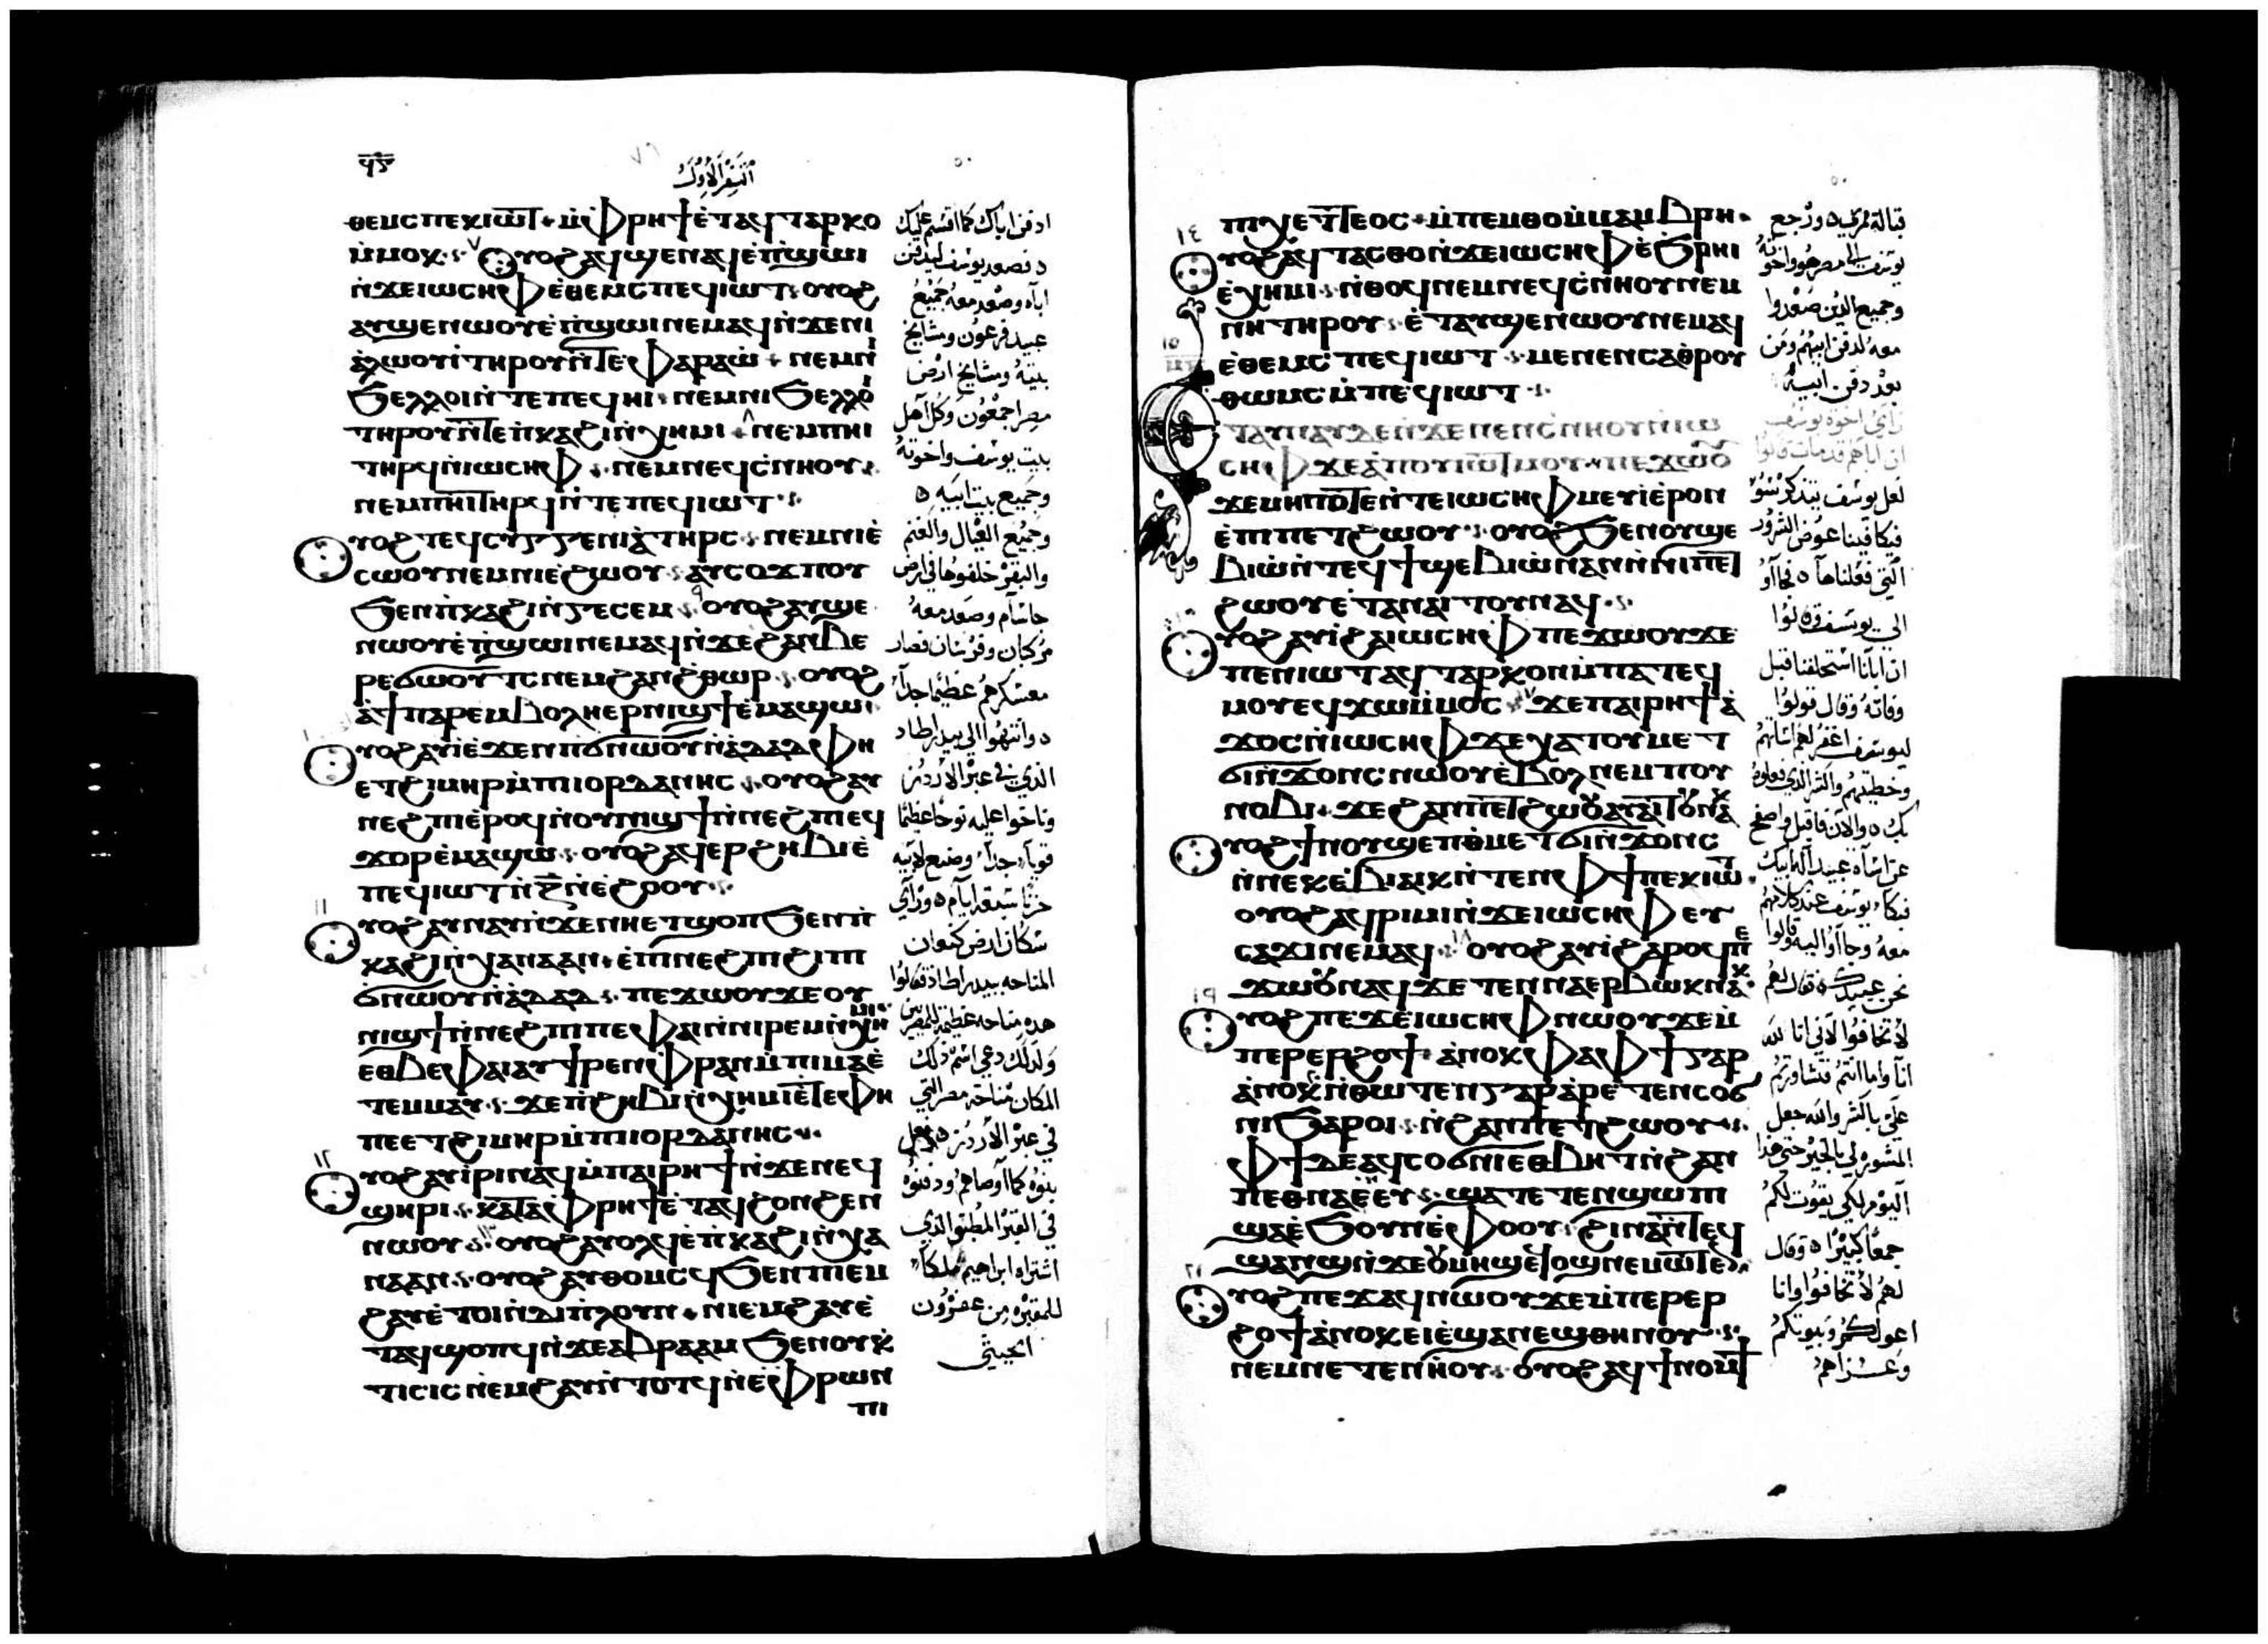 ϥⲋ
السفر الاول
ⲑⲉⲙⲥⲡⲉⲕⲓⲱⲧ ⲙ̀ⲫⲣⲏϯⲉ̀ⲧⲁϥⲧⲁⲣⲕⲟ
ⲙ̀ⲙⲟⲕ ٧ ⲟⲩⲟϩⲁϥϣⲉⲛⲁϥⲉ̀ⲡ̀ϣⲱⲓ
ⲛ̀ϫⲉⲓⲱⲥⲏⲫⲉ̀ⲑⲉⲙⲥⲡⲉϥⲓⲱⲧ ⲟⲩⲟϩ
ⲁⲩϣⲉⲛⲱⲟⲩⲉ̀ⲡ̀ϣⲱⲓⲛⲉⲙⲁϥⲛ̀ϫⲉⲛⲓ
ⲁ̀ⲗⲱⲟⲩⲓ̀ⲧⲏⲣⲟⲩⲛ̀ⲧⲉⲫⲁⲣⲁⲱ̀ ⲛⲉⲙⲛⲓ
ϧⲉⲗⲗⲟⲓⲛ̀ⲧⲉⲡⲉϥⲏⲓ ⲛⲉⲙⲛⲓϧⲉⲗⲗⲟⲓ
ⲧⲏⲣⲟⲩⲛ̀ⲧⲉⲡ̀ⲕⲁϩⲓⲛ̀ⲭⲏⲙⲓ ٨ ⲛⲉⲙⲡⲏⲓ
ⲧⲏⲣϥⲛ̀ⲓⲱⲥⲏⲫ ⲛⲉⲙⲛⲉϥⲥ̀ⲛⲏⲟⲩ
ⲛⲉⲙⲡⲏⲓⲧⲏⲣϥⲛ̀ⲧⲉⲡⲉϥⲓⲱⲧ
ⲟⲩⲟϩⲧⲉϥⲥⲩⲅⲅⲉⲛⲓⲁ̀ⲧⲏⲣⲥ ⲛⲉⲙⲛⲓⲉ̀
ⲥⲱⲟⲩⲛⲉⲙⲛⲓⲉϩⲱⲟⲩ ⲁⲩⲥⲟϫⲡⲟⲩ
ϧⲉⲛⲡ̀ⲕⲁϩⲓⲛ̀ⲅⲉⲥⲉⲙ ٩ ⲟⲩⲟϩⲁⲩϣⲉ
ⲛⲱⲟⲩⲉ̀ⲡ̀ϣⲱⲓⲛⲉⲙⲁϥⲛ̀ϫⲉϩⲁⲛⲃⲉ
ⲣⲉϭⲱⲟⲩⲧⲥⲛⲉⲙϩⲁⲛϩ̀ⲑⲱⲣ ⲟⲩⲟϩ
ⲁ̀ϯⲡⲁⲣⲉⲙⲃⲟⲗⲏⲉⲣⲛⲓϣϯⲉ̀ⲙⲁϣⲱ
١٠
ⲟⲩⲟϩⲁⲩⲓ̀ⲉ̀ϫⲉⲛⲡⲓϭⲛⲱⲟⲩⲛ̀ⲁ̀ⲇⲁⲇⲫⲏ
ⲉⲧϩⲓⲙⲏⲣⲙ̀ⲡⲓⲓⲟⲣⲇⲁⲛⲏⲥ ⲟⲩⲟϩⲁⲩ
ⲛⲉϩⲡⲉ̀ⲣⲟϥⲛ̀ⲟⲩⲛⲓϣϯⲛ̀ⲛⲉϩⲡⲓⲉϥ
ϫⲟⲣⲉ̀ⲙⲁϣⲱ ⲟⲩⲟϩⲁϥⲉⲣϩⲏⲃⲓⲉ̀
ⲡⲉϥⲓⲱⲧⲛ̀ⲍ̄ⲛ̀ⲉ̀ϩⲟⲟⲩ
١١
ⲟⲩⲟϩⲁⲩⲛⲁⲩⲛ̀ϫⲉⲛⲏⲉⲧϣⲟⲡϧⲉⲛⲡ̀
ⲕⲁϩⲓⲛ̀ⲭⲁⲛⲁⲁⲛ ⲉ̀ⲡⲓⲛⲉϩⲡⲓϩⲓⲡⲓ
ϭⲛⲱⲟⲩⲛ̀ⲁ̀ⲇⲁⲇ ⲡⲉϫⲱⲟⲩϫⲉⲟⲩ
ⲛⲓϣϯⲛ̀ⲛⲉϩⲡⲓⲡⲉⲫⲁⲓⲛ̀ⲛⲓⲣⲉⲙⲛ̀ⲭⲏⲙⲓ
ⲉⲑⲃⲉⲫⲁⲓⲁⲩϯⲣⲉⲛⲫ̀ⲣⲁⲛⲙ̀ⲡⲓⲙⲁⲉ̀
ⲧⲉⲙⲙⲁⲩ ϫⲉⲡ̀ϩⲏⲃⲓⲛ̀ⲭⲏⲙⲓⲉ̀ⲧⲉⲫⲏ
ⲡⲉⲉⲧϩⲓⲙⲏⲣⲙ̀ⲡⲓⲓⲟⲣⲇⲁⲛⲏⲥ
١٢
ⲟⲩⲟϩⲁⲩⲓ̀ⲣⲓⲛⲁϥⲙ̀ⲡⲁⲓⲣⲏϯⲛ̀ϫⲉⲛⲉϥ
ϣⲏⲣⲓ ⲕⲁⲧⲁⲫ̀ⲣⲏϯⲉ̀ⲧⲁϥϩⲟⲛϩⲉⲛ
ⲛⲱⲟⲩ ١٣ ⲟⲩⲟϩⲁⲩⲟⲗϥⲉ̀ⲡ̀ⲕⲁϩⲓⲛ̀ⲭⲁ
ⲛⲁⲁⲛ ⲟⲩⲟϩⲁⲩⲑⲟⲙⲥϥϧⲉⲛⲡⲓⲉⲙ
ϩⲁⲩⲉ̀ⲧⲟⲓⲛ̀ⲇⲓⲡ̀ⲗⲟⲩⲛ ⲡⲓⲉⲙϩⲁⲩⲉ̀
ⲧⲁϥϣⲟⲡϥⲛ̀ϫⲉⲁⲃⲣⲁⲁⲙϧⲉⲛⲟⲩⲭ̀
ⲧⲓⲥⲓⲥⲛ̀ⲉⲙϩⲁⲩⲛ̀ⲧⲟⲧϥⲛ̀ⲉ̀ⲫⲣⲱⲛ
ⲡⲓ
ادفن اباك كما اقسم عليك
فصعد يوسف ليدفن
اباه وصعد معه جميع
عبيد فرعون ومشايخ
بيته ومشايخ ارض
مصر اجمعون وكل اهل
بيت يوسف واخوته
وجميع بيت ابيه
وجميع العيال والغنم
والبقر خلفوها في ارض
جاسام وصعد معه
مركبات وفرسان فصار
معسكرهم عظيما جدا
وانتهوا الي بيدر اطاد
الذي في عبر الاردن
وناحوا عليه نوحا عظيما
قويا جدا وصنع لابيه
حزنا سبعة ايام وراي
سكان ارض كنعان
المناحه ببيدر اطاد فقالوا
هذه مناحه عظيمة للمصريين
ولذلك دعي اسم ذلك
المكان مناحة مصر التي
في عبر الاردن ففعل
بنوه كما اوصاهم ودفنوه
في القبر المطبق الذي
اشتراه ابراهيم ملكا
للمقبره من عفرون
الحيثي
ⲡⲓⲭⲉⲧⲧⲉⲟⲥ ⲙ̀ⲡⲉⲙⲑⲟⲙ̀ⲙⲁⲙⲃⲣⲏ
١٤
ⲟⲩⲟϩⲁϥⲧⲁⲥⲑⲟⲛ̀ϫⲉⲓⲱⲥⲏⲫⲉ̀ϧⲣⲏⲓ
ⲉ̀ⲭⲏⲙⲓ ⲛ̀ⲑⲟϥⲛⲉⲙⲛⲉϥⲥ̀ⲛⲏⲟⲩⲛⲉⲙ
ⲛⲏⲧⲏⲣⲟⲩ ⲉ̀ⲧⲁⲩϣⲉⲛⲱⲟⲩⲛⲉⲙⲁϥ
ⲉ̀ⲑⲉⲙⲥⲡⲉϥⲓⲱⲧ ⲙⲉⲛⲉⲛⲥⲁⲑ̀ⲣⲟⲩ
ⲑⲱⲙⲥⲙ̀ⲡⲉϥⲓⲱⲧ
١٥
ⲧⲁⲩⲛⲁⲩⲇⲉⲛ̀ϫⲉⲛⲉⲛⲥ̀ⲛⲏⲟⲩⲛ̀ⲓⲱ
ⲥⲏⲫϫⲉⲁ̀ⲡⲟⲩⲓⲱⲧⲙⲟⲩ ⲡⲉϫⲱⲟⲩ
ϫⲉⲙⲏⲡⲟⲧⲉⲛ̀ⲧⲉⲓⲱⲥⲏⲫⲙⲉⲩⲓ̀ⲉ̀ⲣⲟⲛ
ⲉ̀ⲡⲓⲡⲉⲧϩⲱⲟⲩ ⲟⲩⲟϩϧⲉⲛⲟⲩϣⲉ
ⲃⲓⲱ̀ⲛ̀ⲧⲉϥϯϣⲉⲃⲓⲱ̀ⲛⲁⲛⲛ̀ⲛⲓⲡⲉⲧ
ϩⲱⲟⲩⲉ̀ⲧⲁⲛⲁⲓⲧⲟⲩⲛⲁϥ
ⲟⲩⲟϩⲁⲩⲓ̀ϩⲁⲓⲱⲥⲏⲫⲡⲉϫⲱⲟⲩϫⲉ
ⲡⲉⲛⲓⲱⲧⲁϥⲧⲁⲣⲕⲟⲛⲙ̀ⲡⲁⲧⲉϥ
ⲙⲟⲩⲉϥϫⲱⲙ̀ⲙⲟⲥ ١٧ ϫⲉⲡⲁⲓⲣⲏϯⲁ̀
ϫⲟⲥⲛ̀ⲓⲱⲥⲏⲫϫⲉⲭⲁⲧⲟⲩⲙⲉⲧ
ϭⲓⲛ̀ϫⲟⲛⲥⲛⲱⲟⲩⲉ̀ⲃⲟⲗⲛⲉⲙⲡⲟⲩ
ⲛⲟⲃⲓ ϫⲉϩⲁⲛⲡⲉⲧϩⲱⲟⲩⲁⲩⲁⲓⲧⲟⲩⲛⲁⲕ
ⲟⲩⲟϩϯⲛⲟⲩϣⲉⲡⲑ̀ⲙⲉⲧϭⲓⲛ̀ϫⲟⲛⲥ
ⲛ̀ⲛⲉⲕⲉ̀ⲃⲓⲁⲓⲕⲛ̀ⲧⲉⲛⲫϯⲡⲉⲕⲓⲱⲧ
ⲟⲩⲟϩⲁϥⲣⲓⲙⲓⲛ̀ϫⲉⲓⲱⲥⲏⲫⲉⲩ
ⲥⲁϫⲓⲛⲉⲙⲁϥ ١٨ ⲟⲩⲟϩⲁⲩⲓ̀ϩⲁⲣⲟϥⲡⲉ
ϫⲱⲟⲩⲛⲁϥϫⲉⲧⲉⲛⲛⲁⲉⲣⲃⲱⲕⲛⲁⲕ
١٩
ⲟⲩⲟϩⲡⲉϫⲉⲓ̀ⲱⲥⲏⲫⲛⲱⲟⲩϫⲉⲙ̀
ⲡⲉⲣⲉⲣϩⲟϯ ⲁ̀ⲛⲟⲕⲫⲁⲫϯⲅⲁⲣ
ⲁ̀ⲛⲟⲕⲛ̀ⲑⲱⲧⲉⲛⲅⲁⲣⲁ̀ⲣⲉⲧⲉⲛⲥⲟϭ
ⲛⲓϧⲁⲣⲟⲓ ⲛ̀ϩⲁⲛⲡⲉⲧϩⲱⲟⲩ
ⲫϯⲇⲉⲁϥⲥⲟϭⲛⲓⲉⲑⲃⲏⲧⲛ̀ϩⲁⲛ
ⲡⲉⲑⲛⲁⲛⲉⲩ ϣⲁⲧⲉⲧⲉⲛϣⲱⲡⲓ
ϣⲁⲉ̀ϧⲟⲩⲛⲉ̀ⲫⲟⲟⲩ ϩⲓⲛⲁⲛ̀ⲧⲉϥ
ϣⲁⲛϣⲛ̀ϫⲉⲟⲩⲙⲏϣⲉϥⲟϣⲛⲉⲙⲱⲧⲉⲛ
٢١
ⲟⲩⲟϩⲡⲉϫⲁϥⲛⲱⲟⲩϫⲉⲙ̀ⲡⲉⲣⲉⲣ
ϩⲟϯⲁ̀ⲛⲟⲕⲉⲓⲉ̀ϣⲁⲛⲉϣⲑⲏⲛⲟⲩ
ⲛⲉⲙⲛⲉⲧⲉⲛⲏ̀ⲟⲩ ⲟⲩⲟϩⲁϥϯⲛⲟⲙϯ
قبالة ممري ورجع
يوسف الي مصر هو واخوته
وجميع الذين صعدوا
معه لدفن ابيهم ومن
بعد دفن ابيه
راي اخوة يوسف
ان اباهم قد مات قالوا
لعل يوسف يتذكر سو
فيكافينا عوض الشرور
التي فعلناها فجاوا
الي يوسف قالوا
ان ابانا استحلفنا قبل
وفاته وقال قولوا
ليوسف اغفر لهم اساتهم
وخطيتهم والشر الذي فعلوه
بك والان فاقبل واصفح
عن اساة عبيد اله ابيك
فبكا يوسف عند كلامهم
معه وجاوا اليه وقالوا
نحن عبيدك فقال لهم
لا تخافوا لاني انا لله
انا واما انتم فتشاورتم
علي بالشر والله جعل
المشوره لي بالخير حتي هذا
اليوم لكي يقوت لكم
جمعا كثيرا وقال
لهم لا تخافوا وانا
اعولكم وبيوتكم
وعزاهم